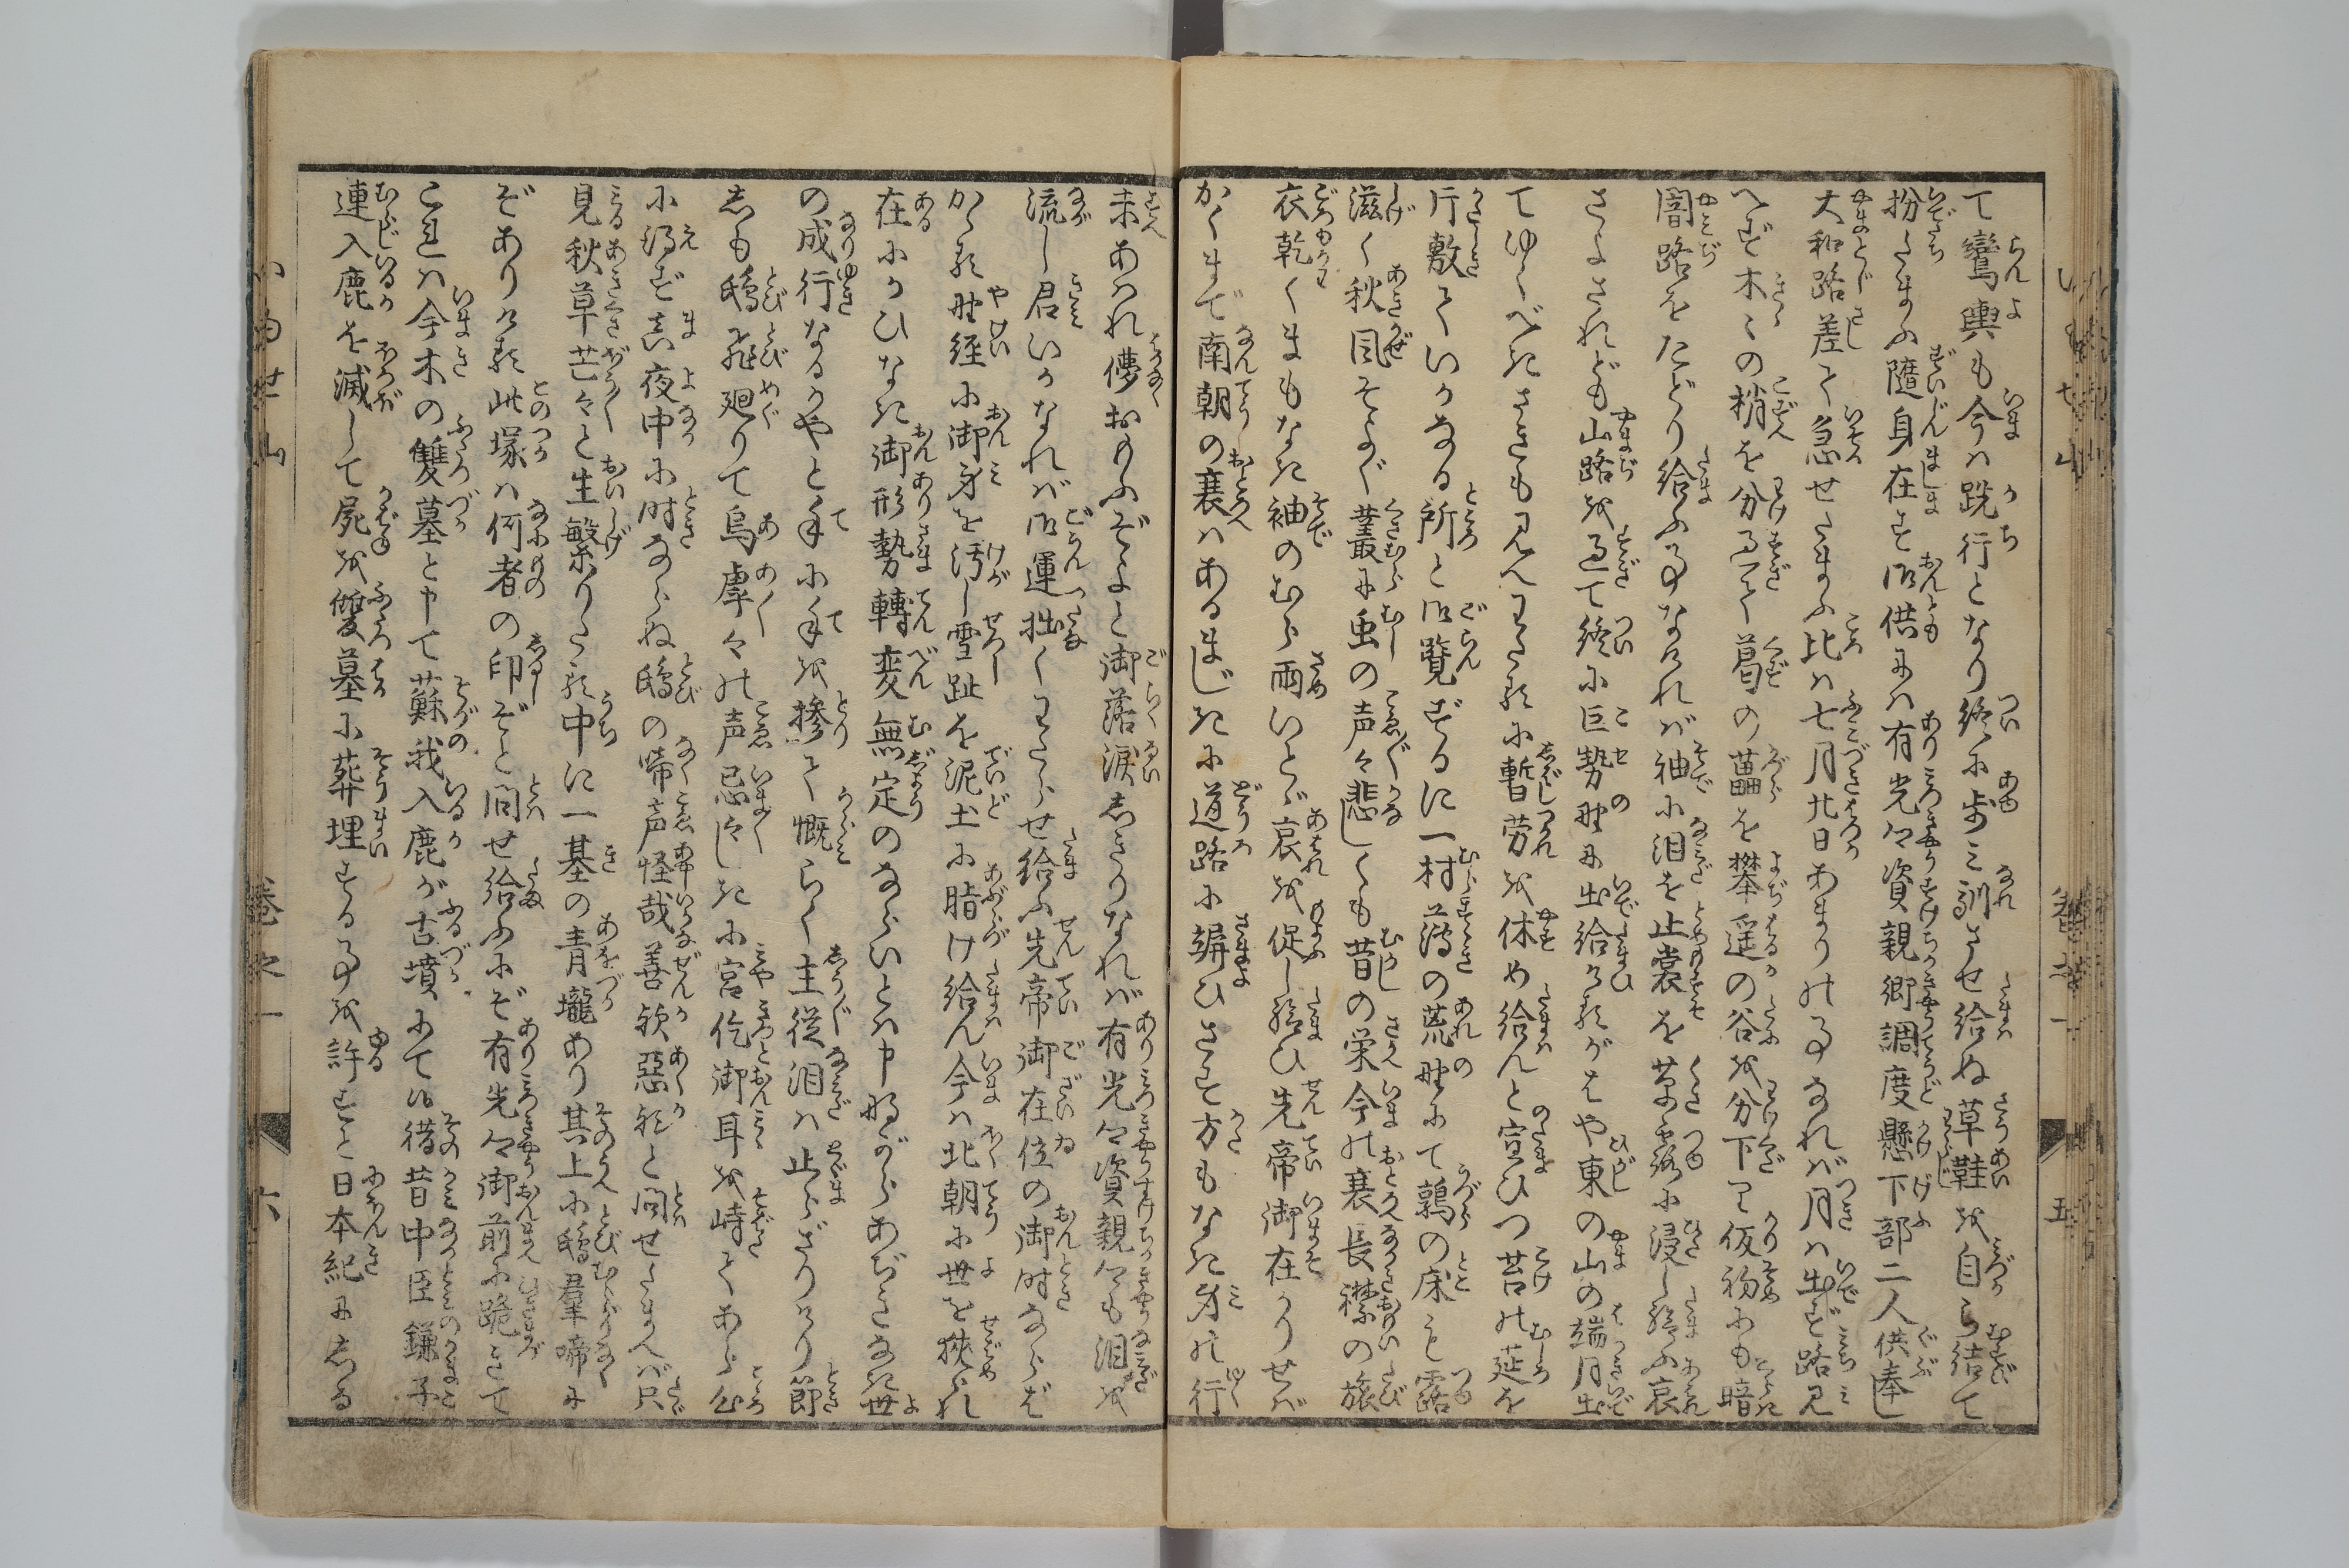 て鸞輿も今は跣行となり終に歩ミ馴させ給ぬ草鞋を自ら結て
扮たまふ随身在す御供には有光公資親卿調度懸下部二人供奉し
大和路差て急せたまふ比は七月廿日あまりの事なれば月は出ず路見
へず木々の梢を分過て葛の藟を攀遥の谷を分下り仮初にも暗
闇路をたどり給ふ事なれば袖に泪を止裳を草露に浸し給ふ哀
さよされども山路を過て終に巨勢野に出給ければはや東の山の端月出
てゆくべきさきも見へわたるに暫労を休め給んと宣ひつ苔の莚を
片敷ていかなる所と御覧ずるに一村薄の荒野にて鶉の床も露
滋く秋風そよぐ叢に虫の声々悲しくも昔の栄今の衰長襟の旅
衣乾くまもなき袖のむら雨いとゞ哀を促し給ひ先帝御在かりせば
かくまで南朝の衰はあるまじきに道路に𨇾ひさす方もなき身の行
末あはれ儚おもふぞよと御落涙しきりなれば有光公資親公も泪を
流し君いかなれば御運拙くわたらせ給ふ先帝御在位の御時ならば
かゝる野径に御身を汚し雪趾を泥土に脂け給ん今は北朝に世を狹られ
在にかひなき御形勢轉変無定のならいとは申ながらあぢきなき世
の成行なるかやと手に手を摻て慨らく主従泪は止らざりけり節
しも鴟飛廻りて烏虖々の声忌々しきに宮佗御耳を峙てあら心
に得ず真夜中に時ならぬ鴟の啼声怪哉善欤惡欤と問せたまへば只
見秋草芒々と生繁りたる中に一基の青壠あり其上に鴟羣啼に
ぞありける此塚は何者の印ぞと問せ給ふにぞ有光公御前に跪きて
これは今木の雙墓と申て蘇我入鹿が古墳にて御徃昔中臣鎌子
連入鹿を滅して屍を雙墓に葬埋する事を許すと日本紀にしる
巻之一
五
巻之一
六